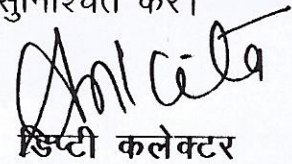 सुनिश्चित करें।
डिप्टी कलेक्टर